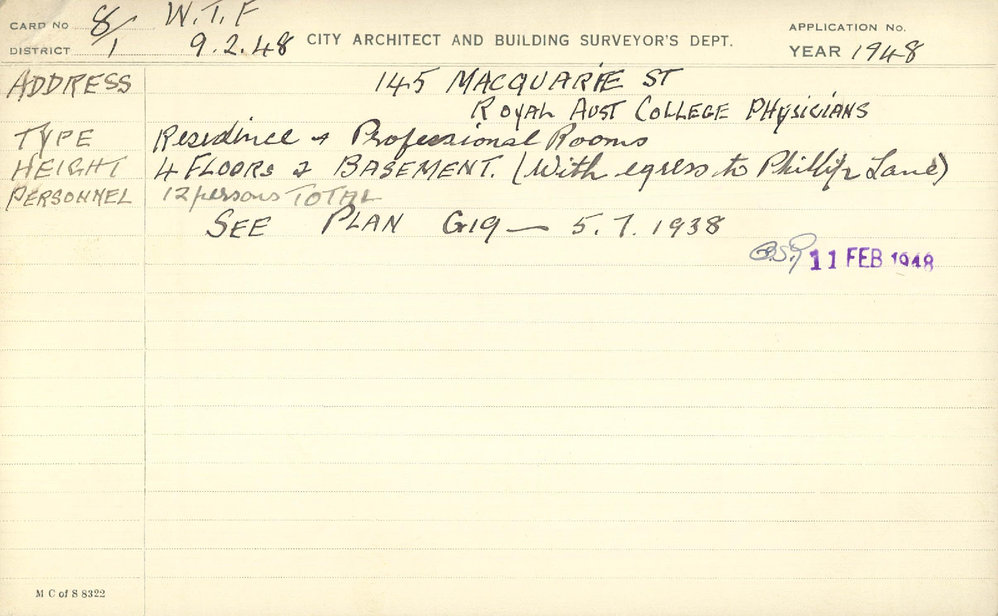 CARD NO 8/1 W.T.F
DISTRICT 9.2.48 CITY ARCHITECT AND BUILDING SURVEYOR'S DEPT.
APPLICATION No.
YEAR 1948
ADDRESS 145 MACQUARIE ST
ROYAL AUST COLLEGE PHYSICIANS
TYPE Residence & Professional Rooms
HEIGHT 4 FLOORS & BASEMENT. (With egress to Phillip Lane)
PERSONNEL 12 persons TOTAL
SEE PLAN G19 — 5.7.1938
11 FEB 1948
M C of S 8322